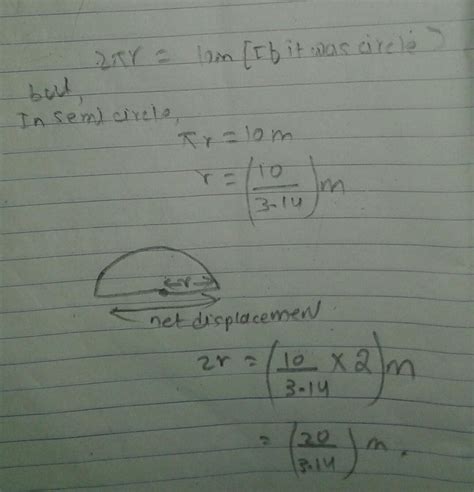 2πr = 10m [If it was circle)
but,
In semi circle,
πr = 10 m
r = (10/3.14) m
r
net displacemen
2r = (10/3.14 × 2) m
= (20/3.14) m.